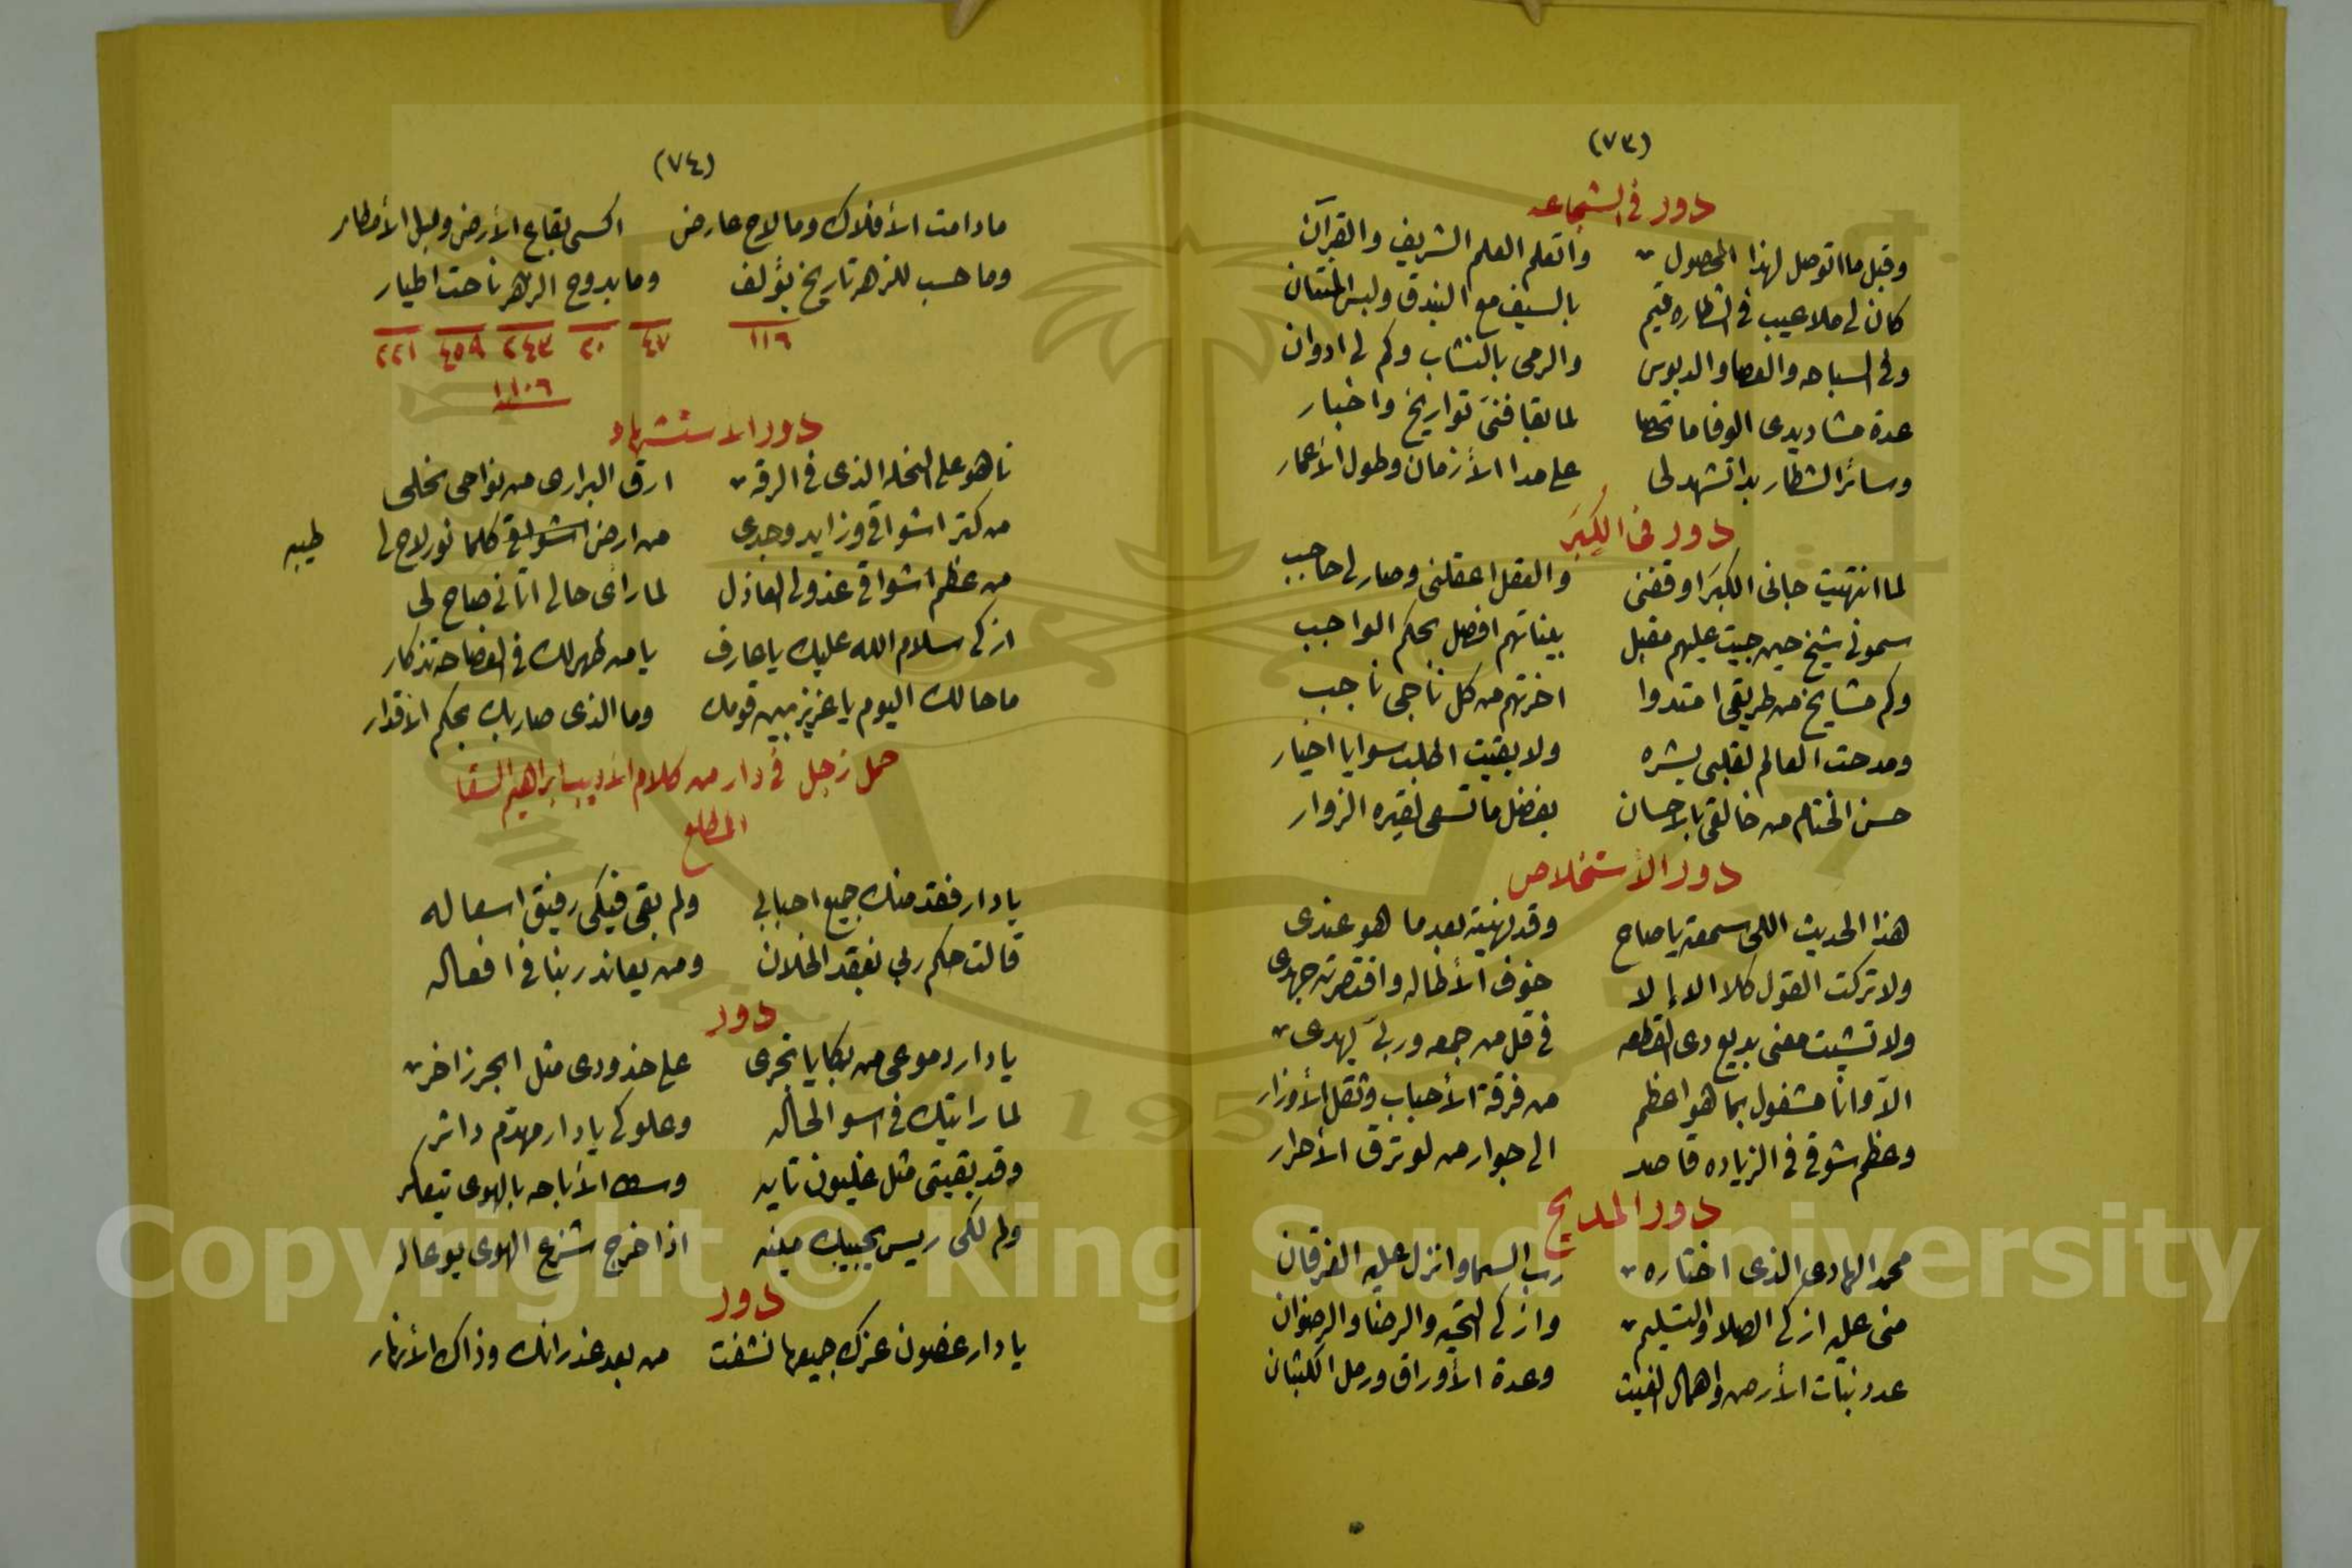 (٧٣)
دور فى الشجاعه
وقبل ما اتوصل لهذا المحصول واتعلم العلم الشريف والقرآن
كان لى ملاعيب فى الشطاره قيم بالسيف مع البندق ولبس الخفتان
وفى السباحه والعصا والدبوس والرمى بالنشاب وكم لى ادوان
عدة مشاديدى الوفا ما تحصا لما بقا فنى تواريخ واخبار
وسائر الشطار بدا تشهد لى على مدا الأزمان وطول الأعمار
دور فى الكِبَر
لما انتهيت جانى الكبَر اوقفنى والعقل اعقلنى وصار لى حاجب
سمونى شيخ حين جيت عليهم مقبل بيناتهم افصل بحكم الواجب
وكم مشايخ من طريقى امتدوا اخرتهم من كل ناجى ناجب
ومدحت العالم لقلبى يشره ولا بقيت اطلب سوايا اخيار
حسن الختام من خالقى بالاحسان بفضل ما تسعى لقبره الزوار
دور الأستخلاص
هذا الحديث اللى سمعته يا صاح وقد نهيته بعد ما هو عندى
ولا تركت القول كلا الا إلا خوف الأطاله واقتصرته جهدى
ولا تشيت معنى بديع دى القطعه فى قل من جمعه وربى يهدى
الّا وانا مشغول بما هو اعظم من فرقة الأحباب وثقل الأوزار
وعظم شوقى فى الزياده قاصد الى جوار من لو ترق الأحرار
دور المديح
محمد الهادى الذى اختاره رب السما وانزل عليه الفرقان
منى عليه ازكى الصلا والتسليم وازكى التحيه والرضا والرضوان
عدد نبات الأرض واهمال الغيث وعدة الأوراق ورمل الكثبان
(٧٤)
ما دامت الأفلاك وما لاح عارض اكسى بقاع الأرض وبل الأمطار
وما حسب للزهر تاريخ يؤلف وما بدوح الزهر ناحت اطيار
١١٦ ٤٧ ٢٠ ٢٤٣ ٤٥٩ ٢٢١
١١٠٦
دور الاستشهاد
ناهو على النخله الذى فى الرقه ارق البرارى من نواحى نخلى
من كتر اشواقى وزايد وجدى من ارض اشواقى كلما نور لاح لى طيبه
من عظم اشواقى عذولى العاذل لما رأى حالى اتانى صاح لى
ازكى سلام الله عليك يا عارف يا من ظهر لك فى الفصاحه تذكار
ما حالك اليوم يا عزيز بين قومك وما الذى صار بك بحكم الاقدار
حمل زجل فى دار من كلام الأديب ابراهيم السقا
المطلع
يا دار فقد منك جميع احبابى ولم بقى فيكى رفيق اسعاله
قالت حكم ربى بفقد الخلان ومن يعاند ربنا فى افعاله
دور
يا دار دموعى من بكايا تجرى على خدودى مثل ابحر زاخر
لما رايتك فى اسو الحاله وعلوكى يا دار مهدّم داثر
وقد بقيتى مثل غليون تايه وسط الأباحه بالهوى تيعاكر
ولم لكى ريس يجيبك مينه اذا خرج شرع الهوى يوعاله
دور
يا دار غصون عزك جميعها نشفت من بعد غدرانك وذاك الأنهار